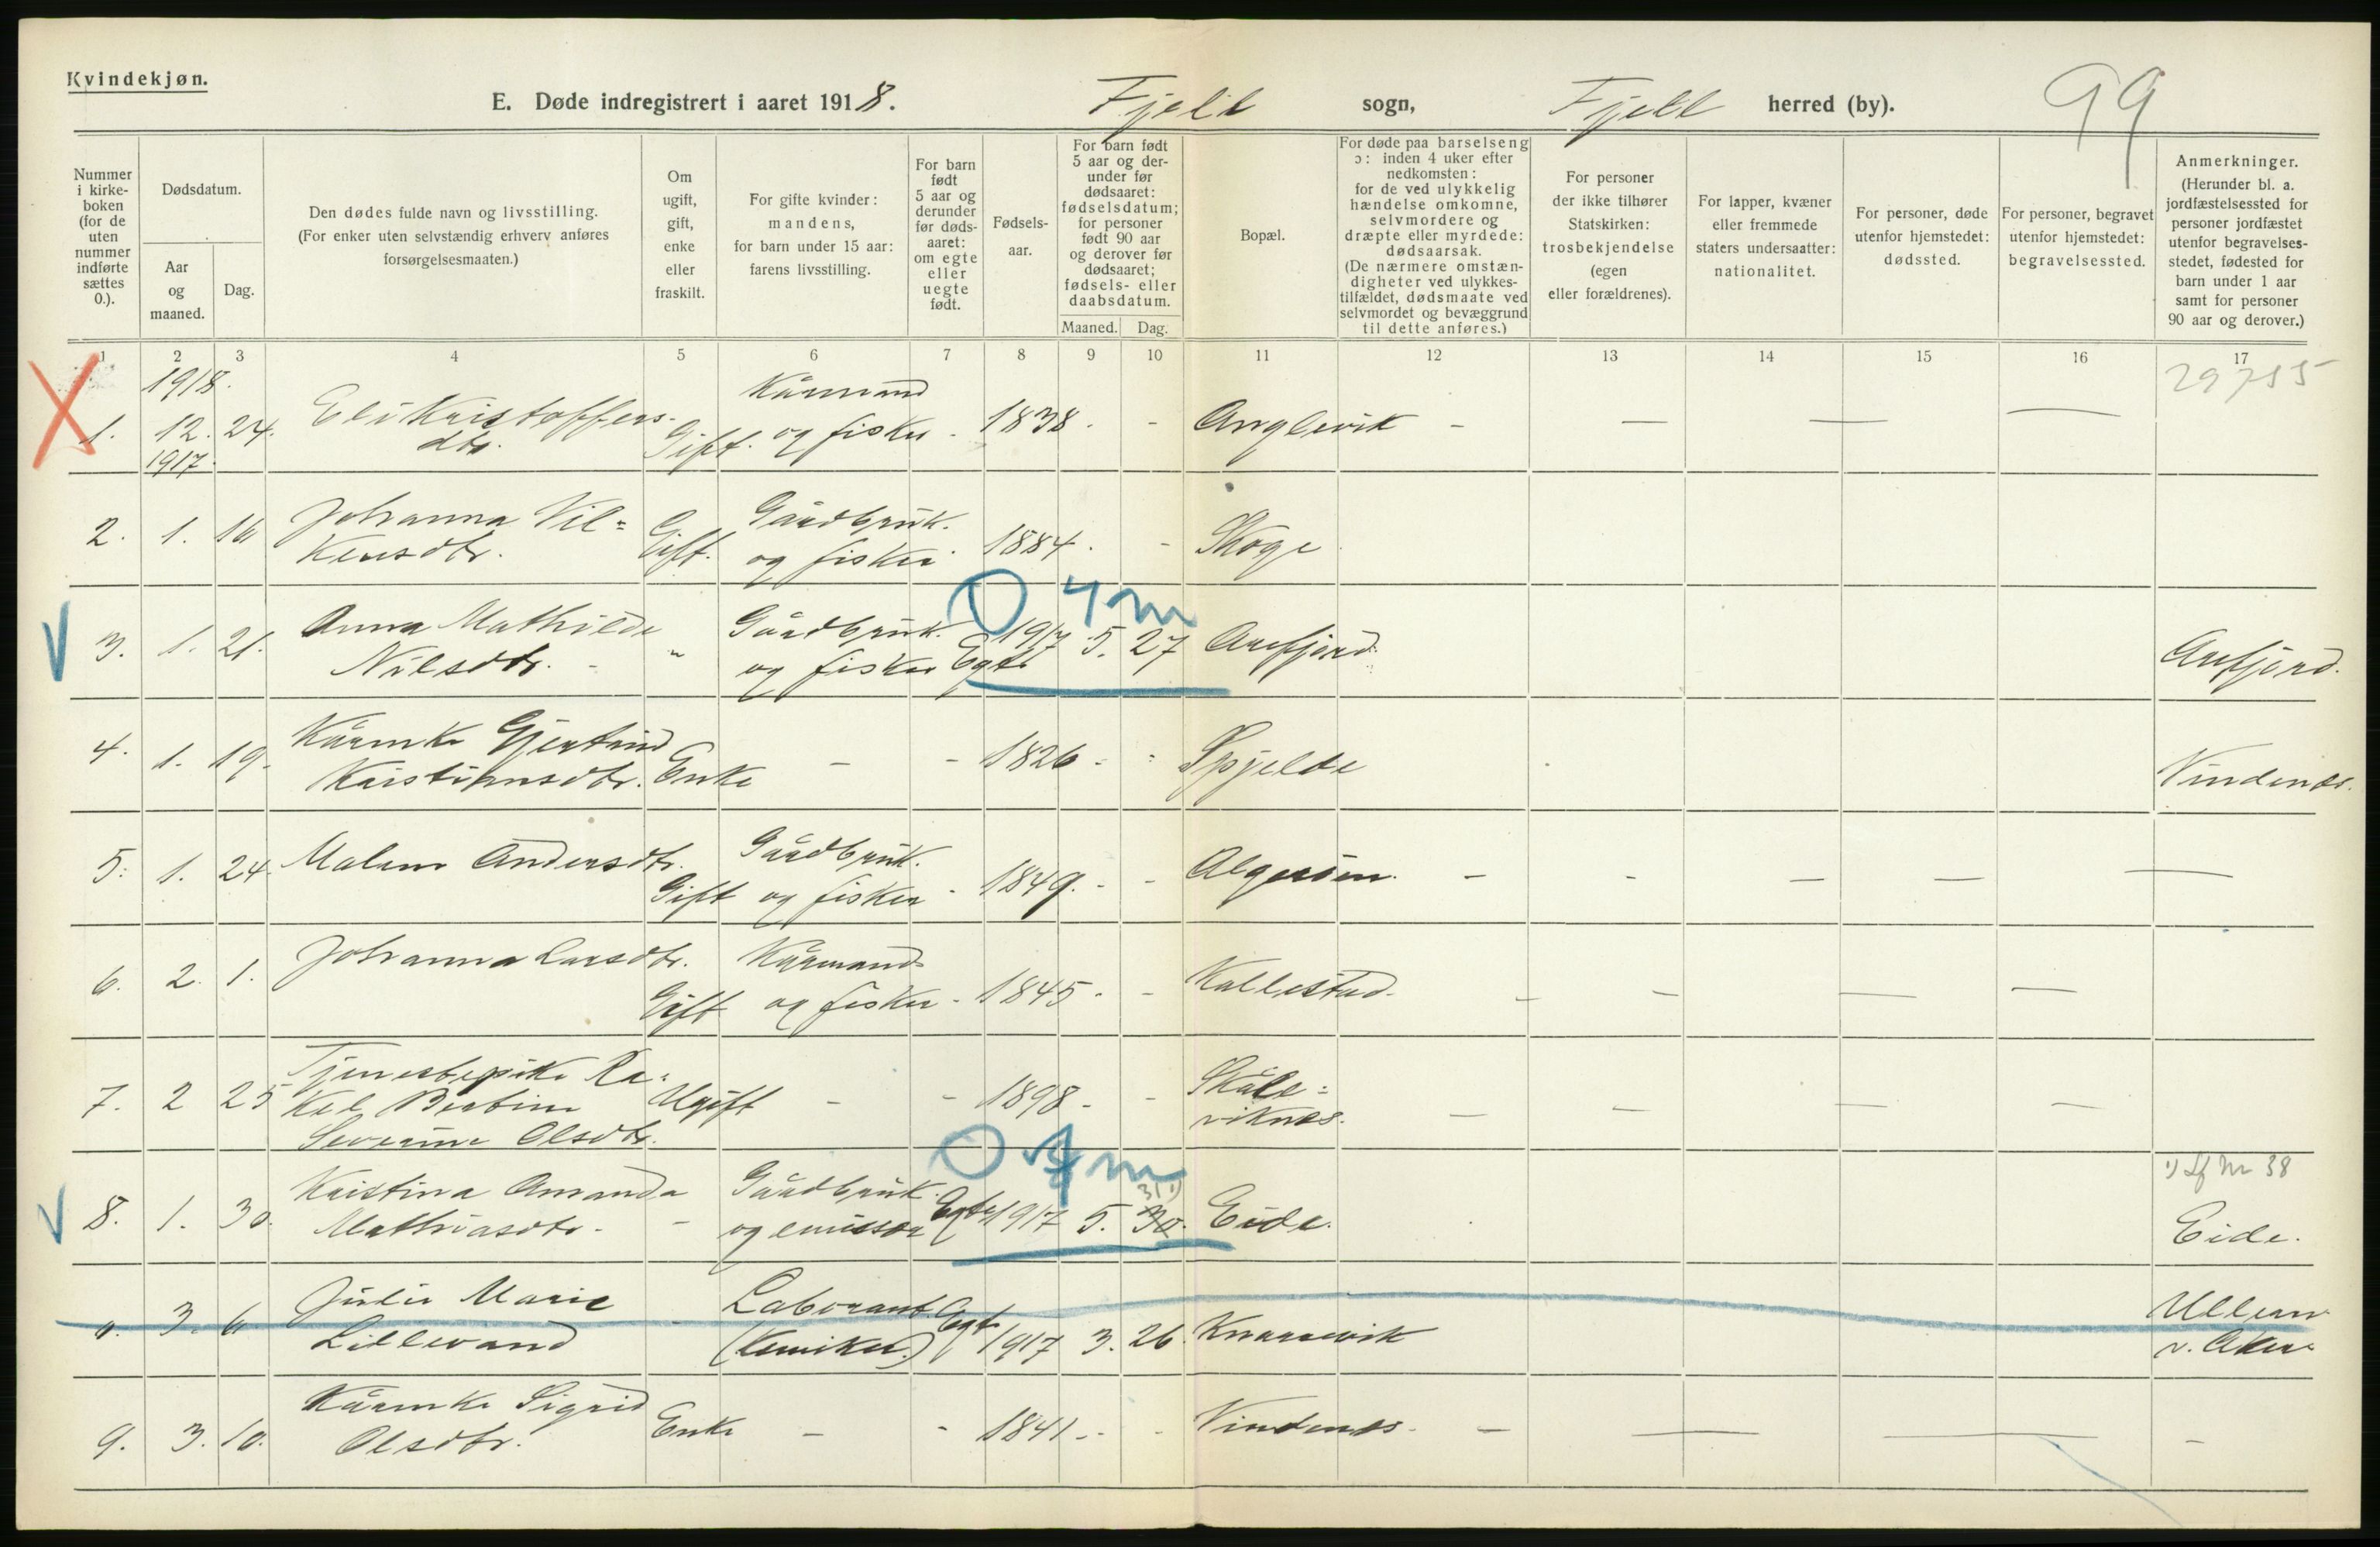 Kvindekjøn.
E. Døde indregistrert i aaret 1918. Fjell sogn, Fjell herred (by). 99
Nummer i kirke-boken (for de uten nummer indførte sættes 0.).
Dødsdatum.
Aar og maaned.
Dag.
Den dødes fulde navn og livsstilling.
(For enker uten selvstændig erhverv anføres
forsørgelsesmaaten.)
Om ugift, gift, enke eller fraskilt.
For gifte kvinder: mandens, for barn under 15 aar: farens livsstilling.
For barn født 5 aar og derunder før døds-aaret: om egte eller uegte født.
Fødsels-aar.
For barn født 5 aar og der-under før dødsaaret: fødselsdatum; for personer født 90 aar og derover før dødsaaret; fødsels- eller daabsdatum.
Maaned. Dag.
Bopæl.
For døde paa barselseng ɔ: inden 4 uker efter nedkomsten: for de ved ulykkelig hændelse omkomne, selvmordere og dræpte eller myrdede: dødsaarsak. (De nærmere omstæn-digheter ved ulykkes-tilfældet, dødsmaate ved selvmordet og bevæggrund til dette anføres.)
For personer der ikke tilhører Statskirken: trosbekjendelse (egen eller forældrenes).
For lapper, kvæner eller fremmede staters undersaatter: nationalitet.
For personer, døde utenfor hjemstedet: dødssted.
For personer, begravet utenfor hjemstedet: begravelsessted.
Anmerkninger. (Herunder bl. a. jordfæstelsessted for personer jordfæstet utenfor begravelses-stedet, fødested for barn under 1 aar samt for personer 90 aar og derover.)
1 2 3 4 5 6 7 8 9 10 11 12 13 14 15 16 17
1918. Kårmand 29755
1. 12. 24. Eli Kristoffers- Gift. og fisker - 1838. - Anglevik - — — —
1917. dtr.
2. 1. 10 Johanna Vil= Gift. Gårdbruk. 1884. - Skoge
kensdtr. og fisker
0 4 m
3. 1. 21. Anna Mathilde " Gårdbruk. Egte 1917 5. 27 Arefjord. Arefjord.
Nilsdtr. - og fisker
4. 1. 19. Kårenke Gjertrud Enke - - 1826 - - Spjelde Vindenes.
Kristiansdtr.
5. 1. 24. Malene Andersdtr. Gårdbruk.
Gift og fisker - 1849. - - Algerøen. - - — — —
6. 2. 1. Johanna Larsdtr. Kårmand
Gift og fisker - 1845 - - Kallestad. - - — —
Tjenestepike Ra= Skåle=
7. 2 25 kel Bertine Ugift - - 1898 - - viknes. — — — —
Severine Olsdtr.
0 m 1) Nr 38
8. 1. 30. Kristina Amanda - Gårdbruk. Egte 1917 5. 30. 31 1) Eide. Eide.
Mathiasdtr. - og emissær
0. 3. 6 Julie Marie - Laborant Egte Ullevn
Lillevand (kemiker.) 1917 3. 26. Knarrevik v. Aker.
9. 3. 10. Kårenke Sigrid Enke - - 1841 - - Vindenes. - — — -
Olsdtr.